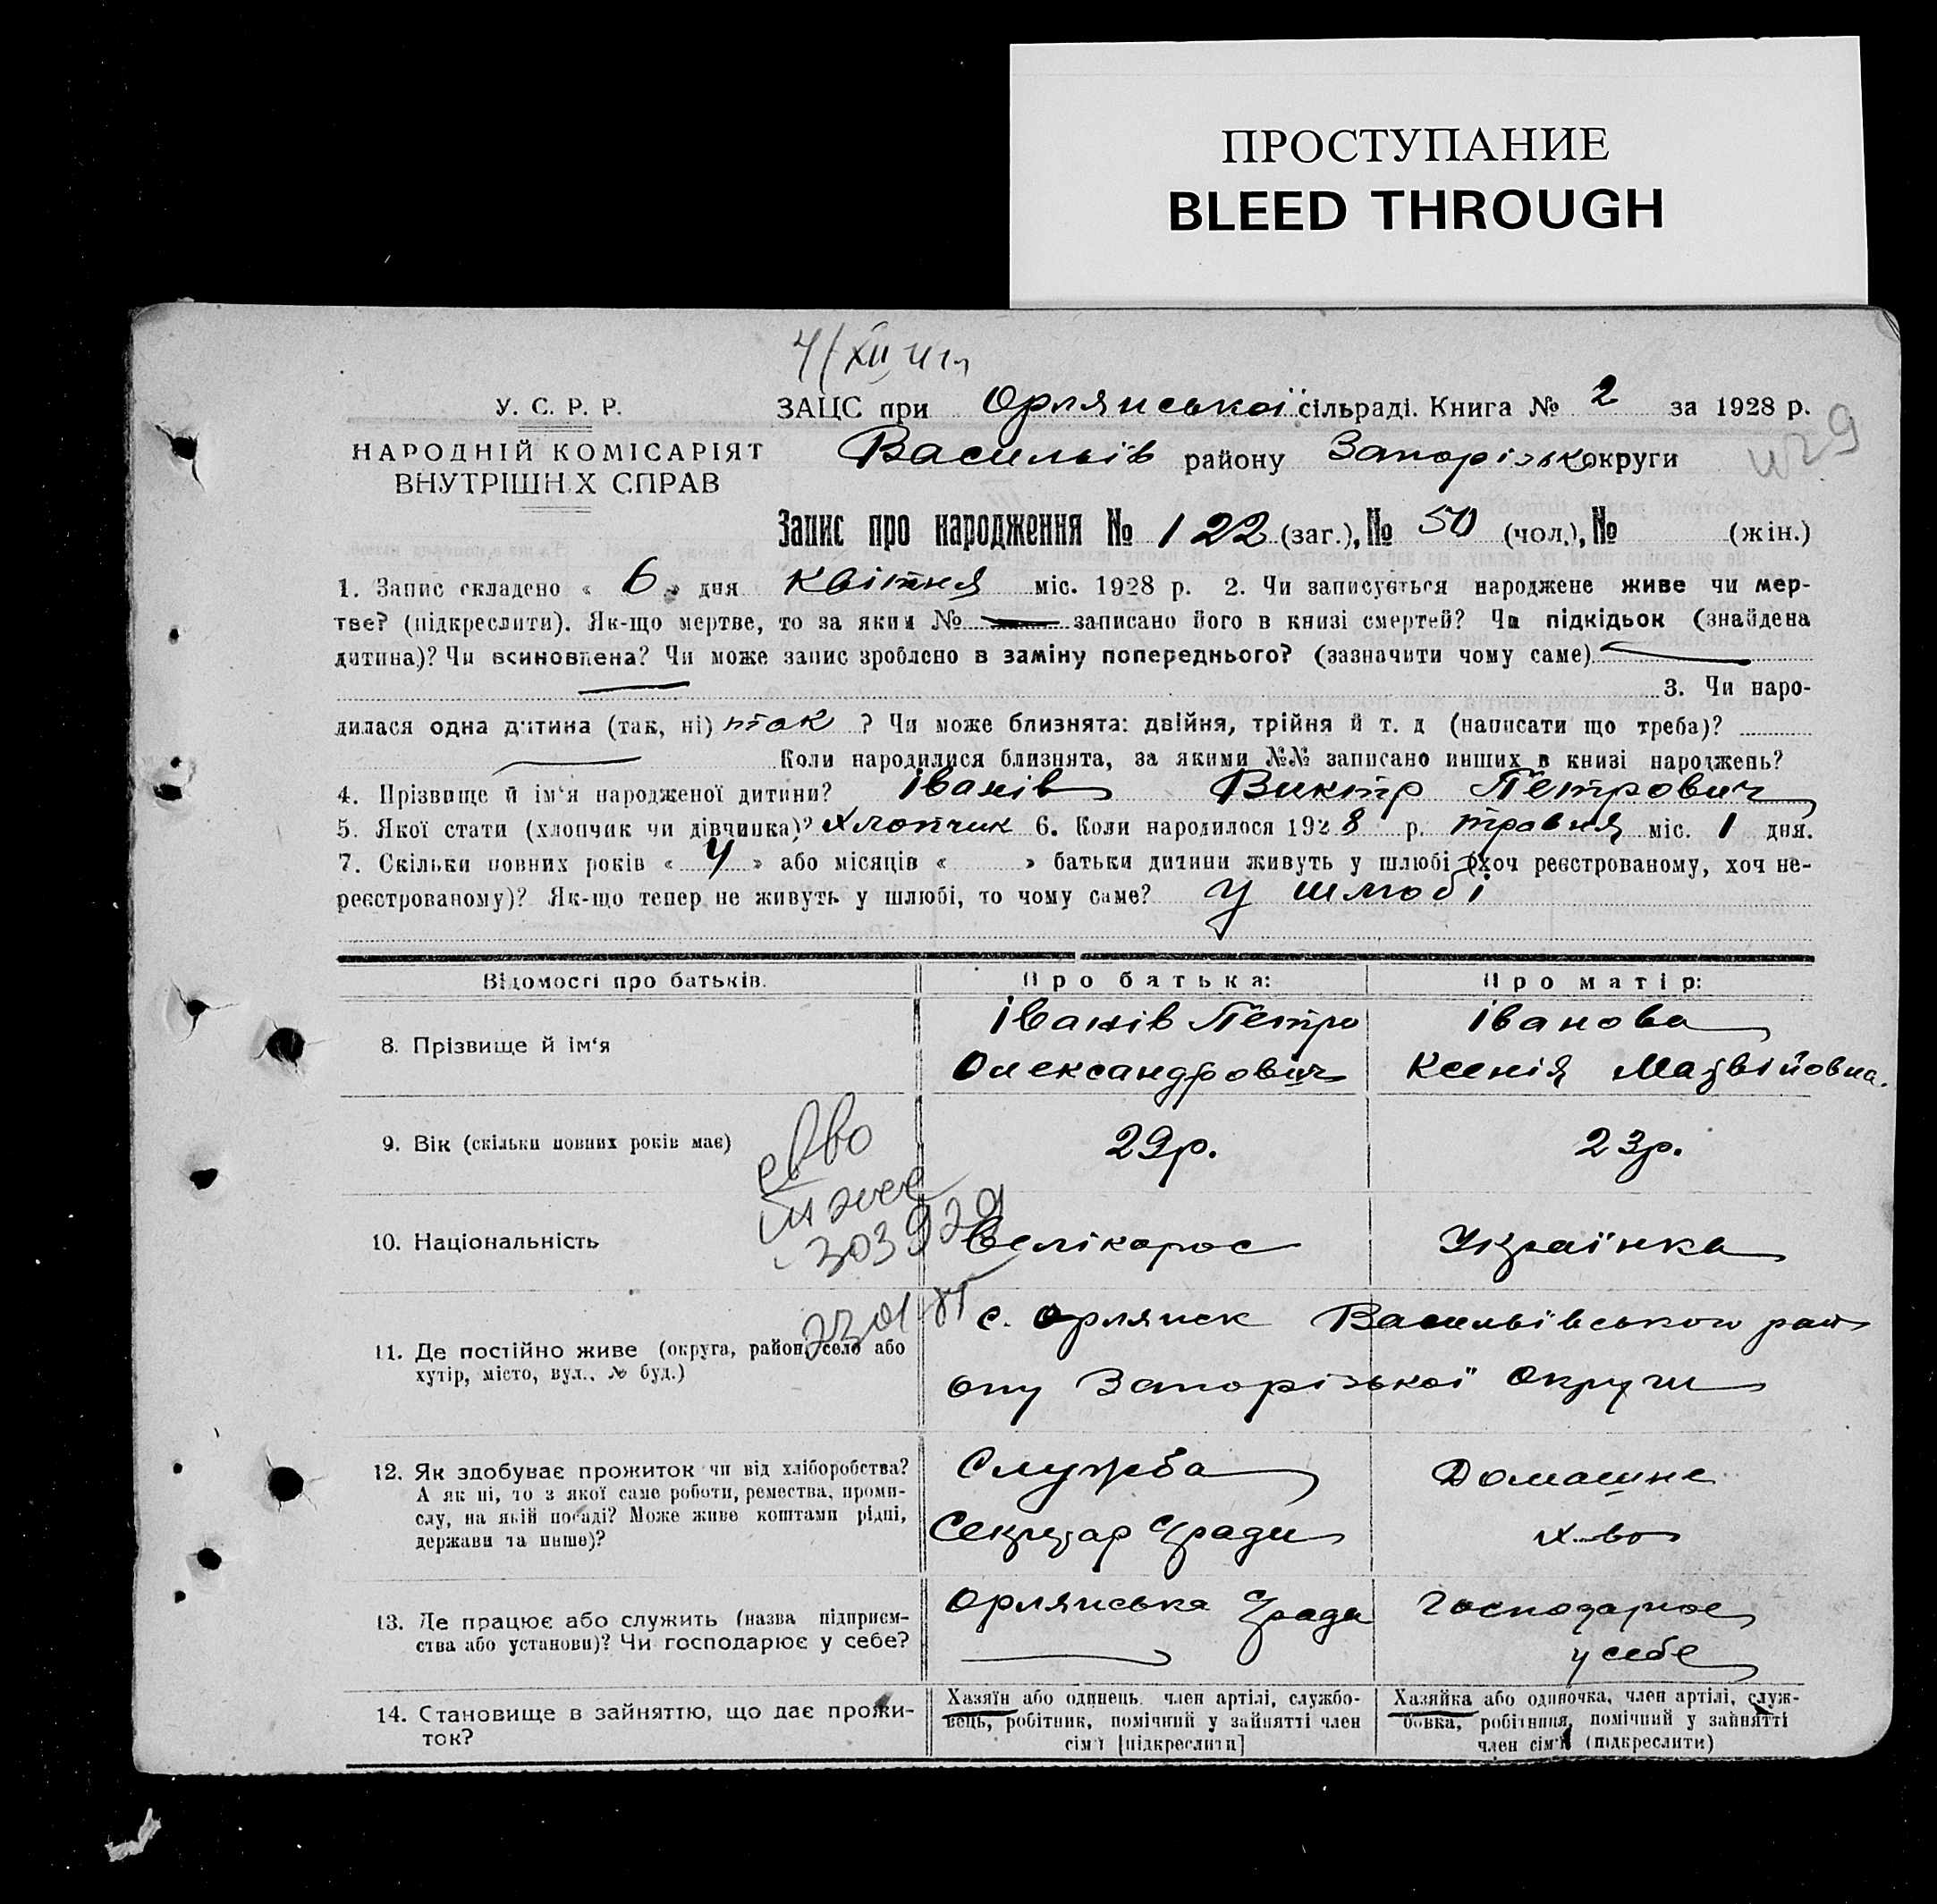 ПРОСТУПАНИЕ
BLEED THROUGH
4/XII 41г
У. С. Р. Р.
НАРОДНІЙ КОМІСАРІЯТ
ВНУТРІШНІХ СПРАВ
ЗАЦС при Орлянської сільраді. Книга № 2 за 1928 р.
Василів району Запорізької округи
Запис про народження № 122 (заг.), № 50 (чол.), № (жін.)
1. Запис складено « 6 » дня Квітня міс. 1928 р. 2. Чи записується народжене живе чи мер-
тве? (підкреслити). Як-що мертве, то за яким № записано його в книзі смертей? Чи підкідьок (знайдена
дитина)? Чи всиновлена? Чи може запис зроблено в заміну попереднього? (зазначити чому саме)
3. Чи наро-
дилася одна дитина (так, ні) так ? Чи може близнята: двійня, трійня й т. д (написати що треба)?
Коли народилися близнята, за якими №№ записано инших в книзі народжень?
4. Прізвище й ім'я народженої дитини? Іванів Виктр Петрович
5. Якої стати (хлопчик чи дівчинка)? Хлопчик 6. Коли народилося 1928 р. травня міс. 1 дня.
7. Скільки повних років « 4 » або місяців « » батьки дитини живуть у шлюбі (хоч реєстрованому, хоч не-
реєстрованому)? Як-що тепер не живуть у шлюбі, то чому саме? У шлюбі
Відомості про батьків.
Про батька:
Про матір:
8. Прізвище й ім'я
Іванів Петро
Олександрович
Іванова
Ксенія Матвійовна.
9. Вік (скільки повних років має)
29р.
23р.
10. Національність
Велікорос
Українка
11. Де постійно живе (округа, район, село або
хутір, місто, вул., № буд.)
с. Орлянск Васильівського рай
ону Запорізької Округи
12. Як здобуває прожиток чи від хліборобства?
А як ні, то з якої саме роботи, ремества, проми-
слу, на якій посаді? Може живе коштами рідні,
держави та инше)?
Служба
Секретар С/ради
Домашнє
х-во
13. Де працює або служить (назва підприєм-
ства або установи)? Чи господарює у себе?
Орлянська С/рада
Господарює
у себе
14. Становище в зайняттю, що дає прожи-
ток?
Хазяїн або одинець, член артілі, службо-
вець, робітник, помічний у зайнятті член
сім'ї [підкреслити]
Хазяйка або одиночка, член артілі, служ-
бовка, робітниця, помічний у зайнятті
член сім'ї (підкреслити)